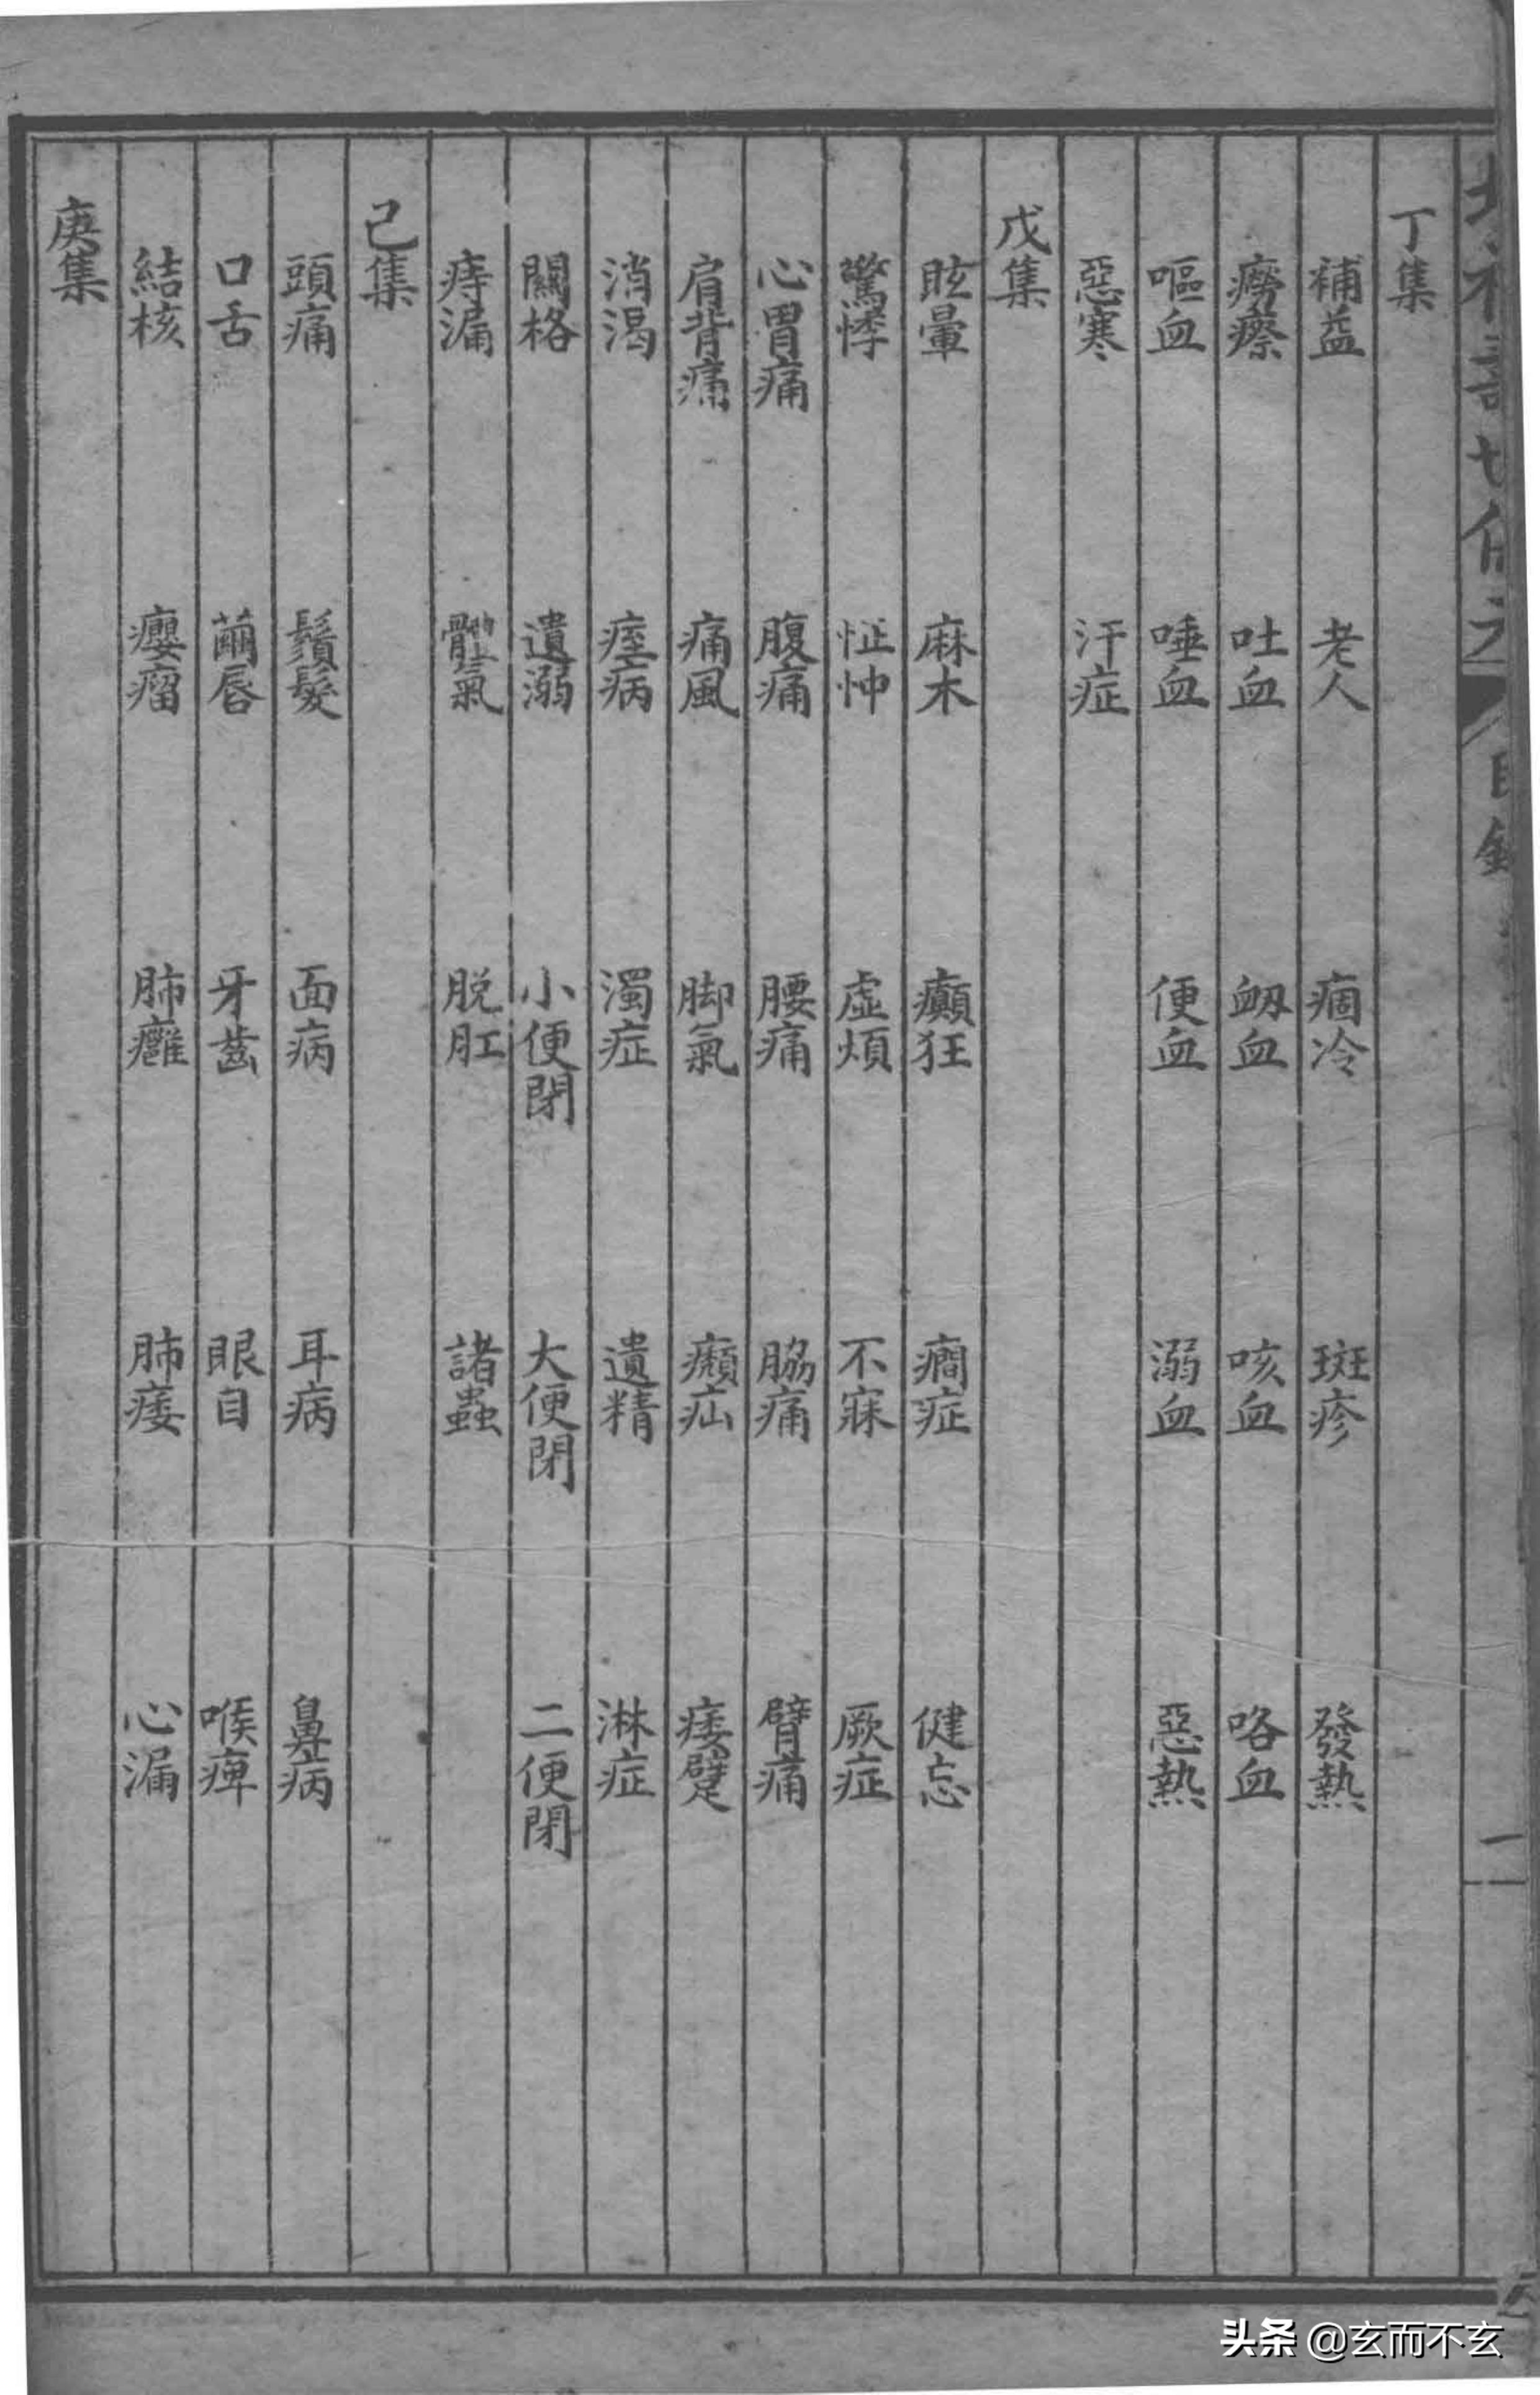 目錄
一
丁集
補益 老人 痼冷 斑疹 發熱
癆瘵 吐血 衂血 咳血 咯血
嘔血 唾血 便血 溺血 惡熱
惡寒 汗症
戊集
眩暈 麻木 癲狂 癇症 健忘
驚悸 怔忡 虛煩 不寐 厥症
心胃痛 腹痛 腰痛 脇痛 臂痛
肩背痛 痛風 脚氣 㿗疝 痿躄
消渴 痓病 濁症 遺精 淋症
關格 遺溺 小便閉 大便閉 二便閉
痔漏 體氣 脱肛 諸蟲
己集
頭痛 鬚髮 面病 耳病 鼻病
口舌 繭唇 牙齒 眼目 喉痺
結核 癭瘤 肺癰 肺痿 心漏
庚集
头条 @玄而不玄